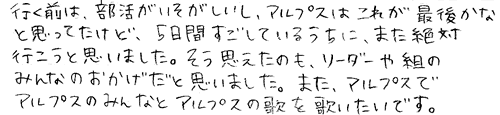 行く前は、部活がいそがしいし、アルプスはこれが最後かな
と思ってたけど、5日間すごしているうちに、また絶対
行こうと思いました。そう思えたのも、リーダーや組の
みんなのおかげだと思いました。また、アルプスで
アルプスのみんなとアルプスの歌を歌いたいです。